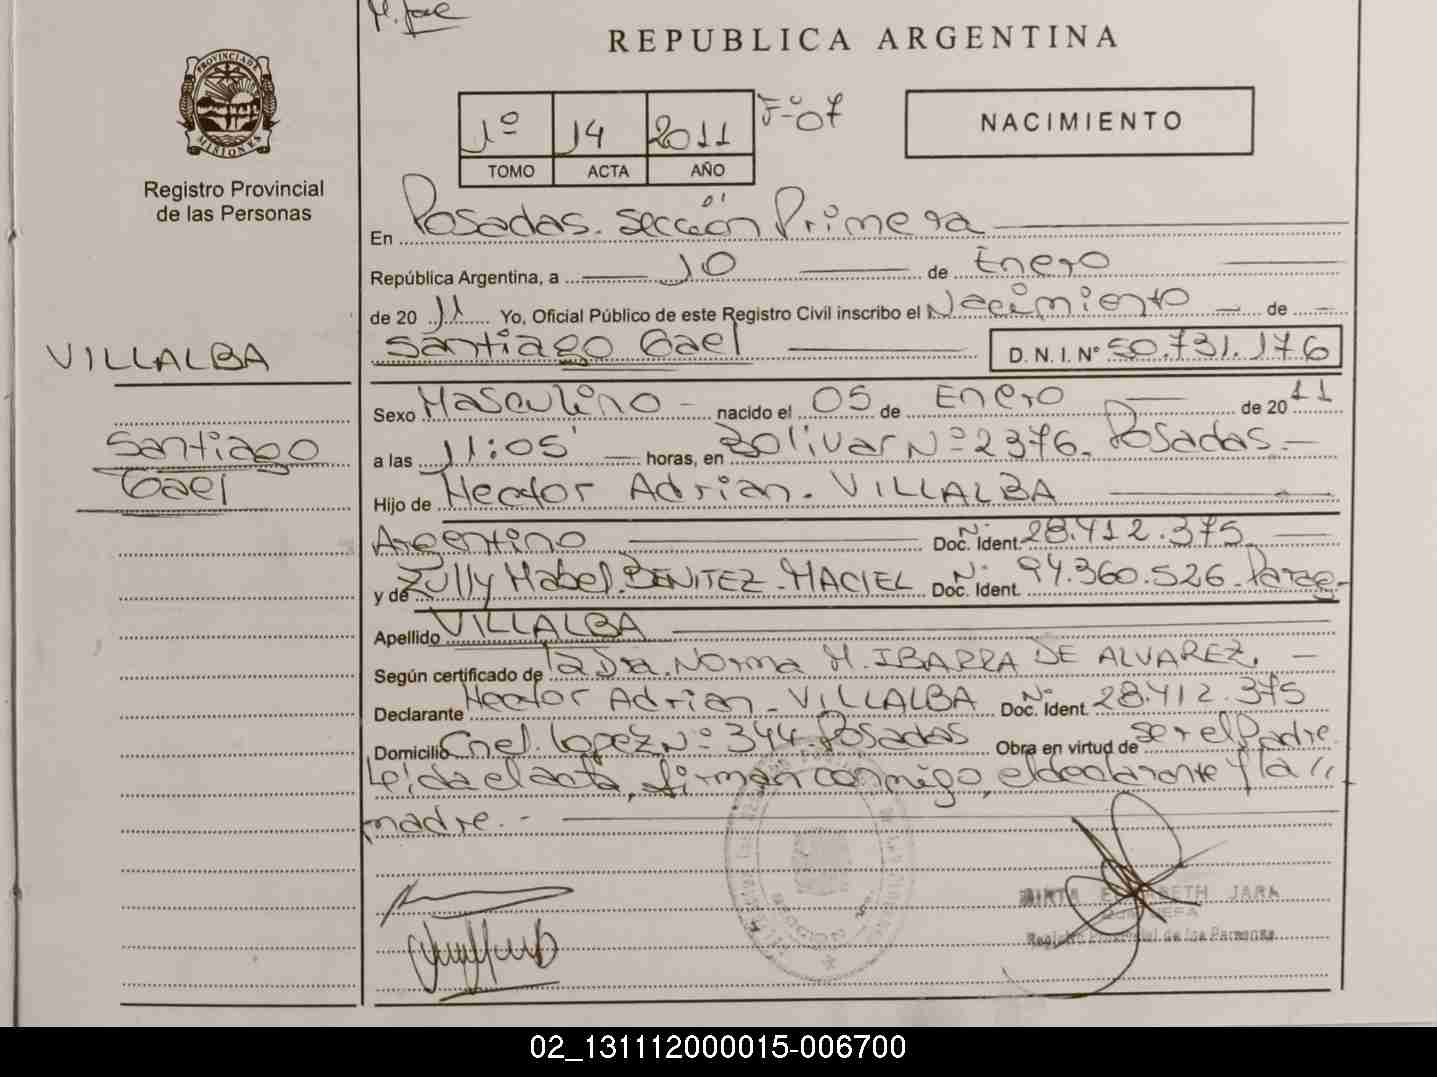 REPUBLICA ARGENTINA
PROVINCIA DE MISIONES
Registro Provincial
de las Personas
1º 14 2011 Fº 07
TOMO ACTA AÑO
NACIMIENTO
En Posadas. Sección Primera
República Argentina, a 10 de Enero
de 2011 Yo, Oficial Público de este Registro Civil inscribo el Nacimiento de
Santiago Gael D.N.I.Nº 50.731.176
VILLALBA
Santiago
Gael
Sexo Masculino - nacido el 05 de Enero de 2011
a las 11:05' horas, en Bolivar Nº 2376. Posadas.
Hijo de Hector Adrian. VILLALBA
Argentino Doc. Ident. Nº 28.412.375
y de Zully Mabel. BENITEZ - MACIEL Doc. Ident. Nº 94.360.526. Parag-
Apellido VILLALBA
Según certificado de la Dra. Norma M. IBARRA DE ALVAREZ.
Declarante Hector Adrian - VILLALBA Doc. Ident. Nº 28.412.375
Domicilio Cnel. Lopez Nº 344. Posadas Obra en virtud de ser el Padre
Leida el acta, firman conmigo, el declarante y la //
madre. -
ELIZABETH JARA
Registro Provincial de las Personas
02_131112000015-006700